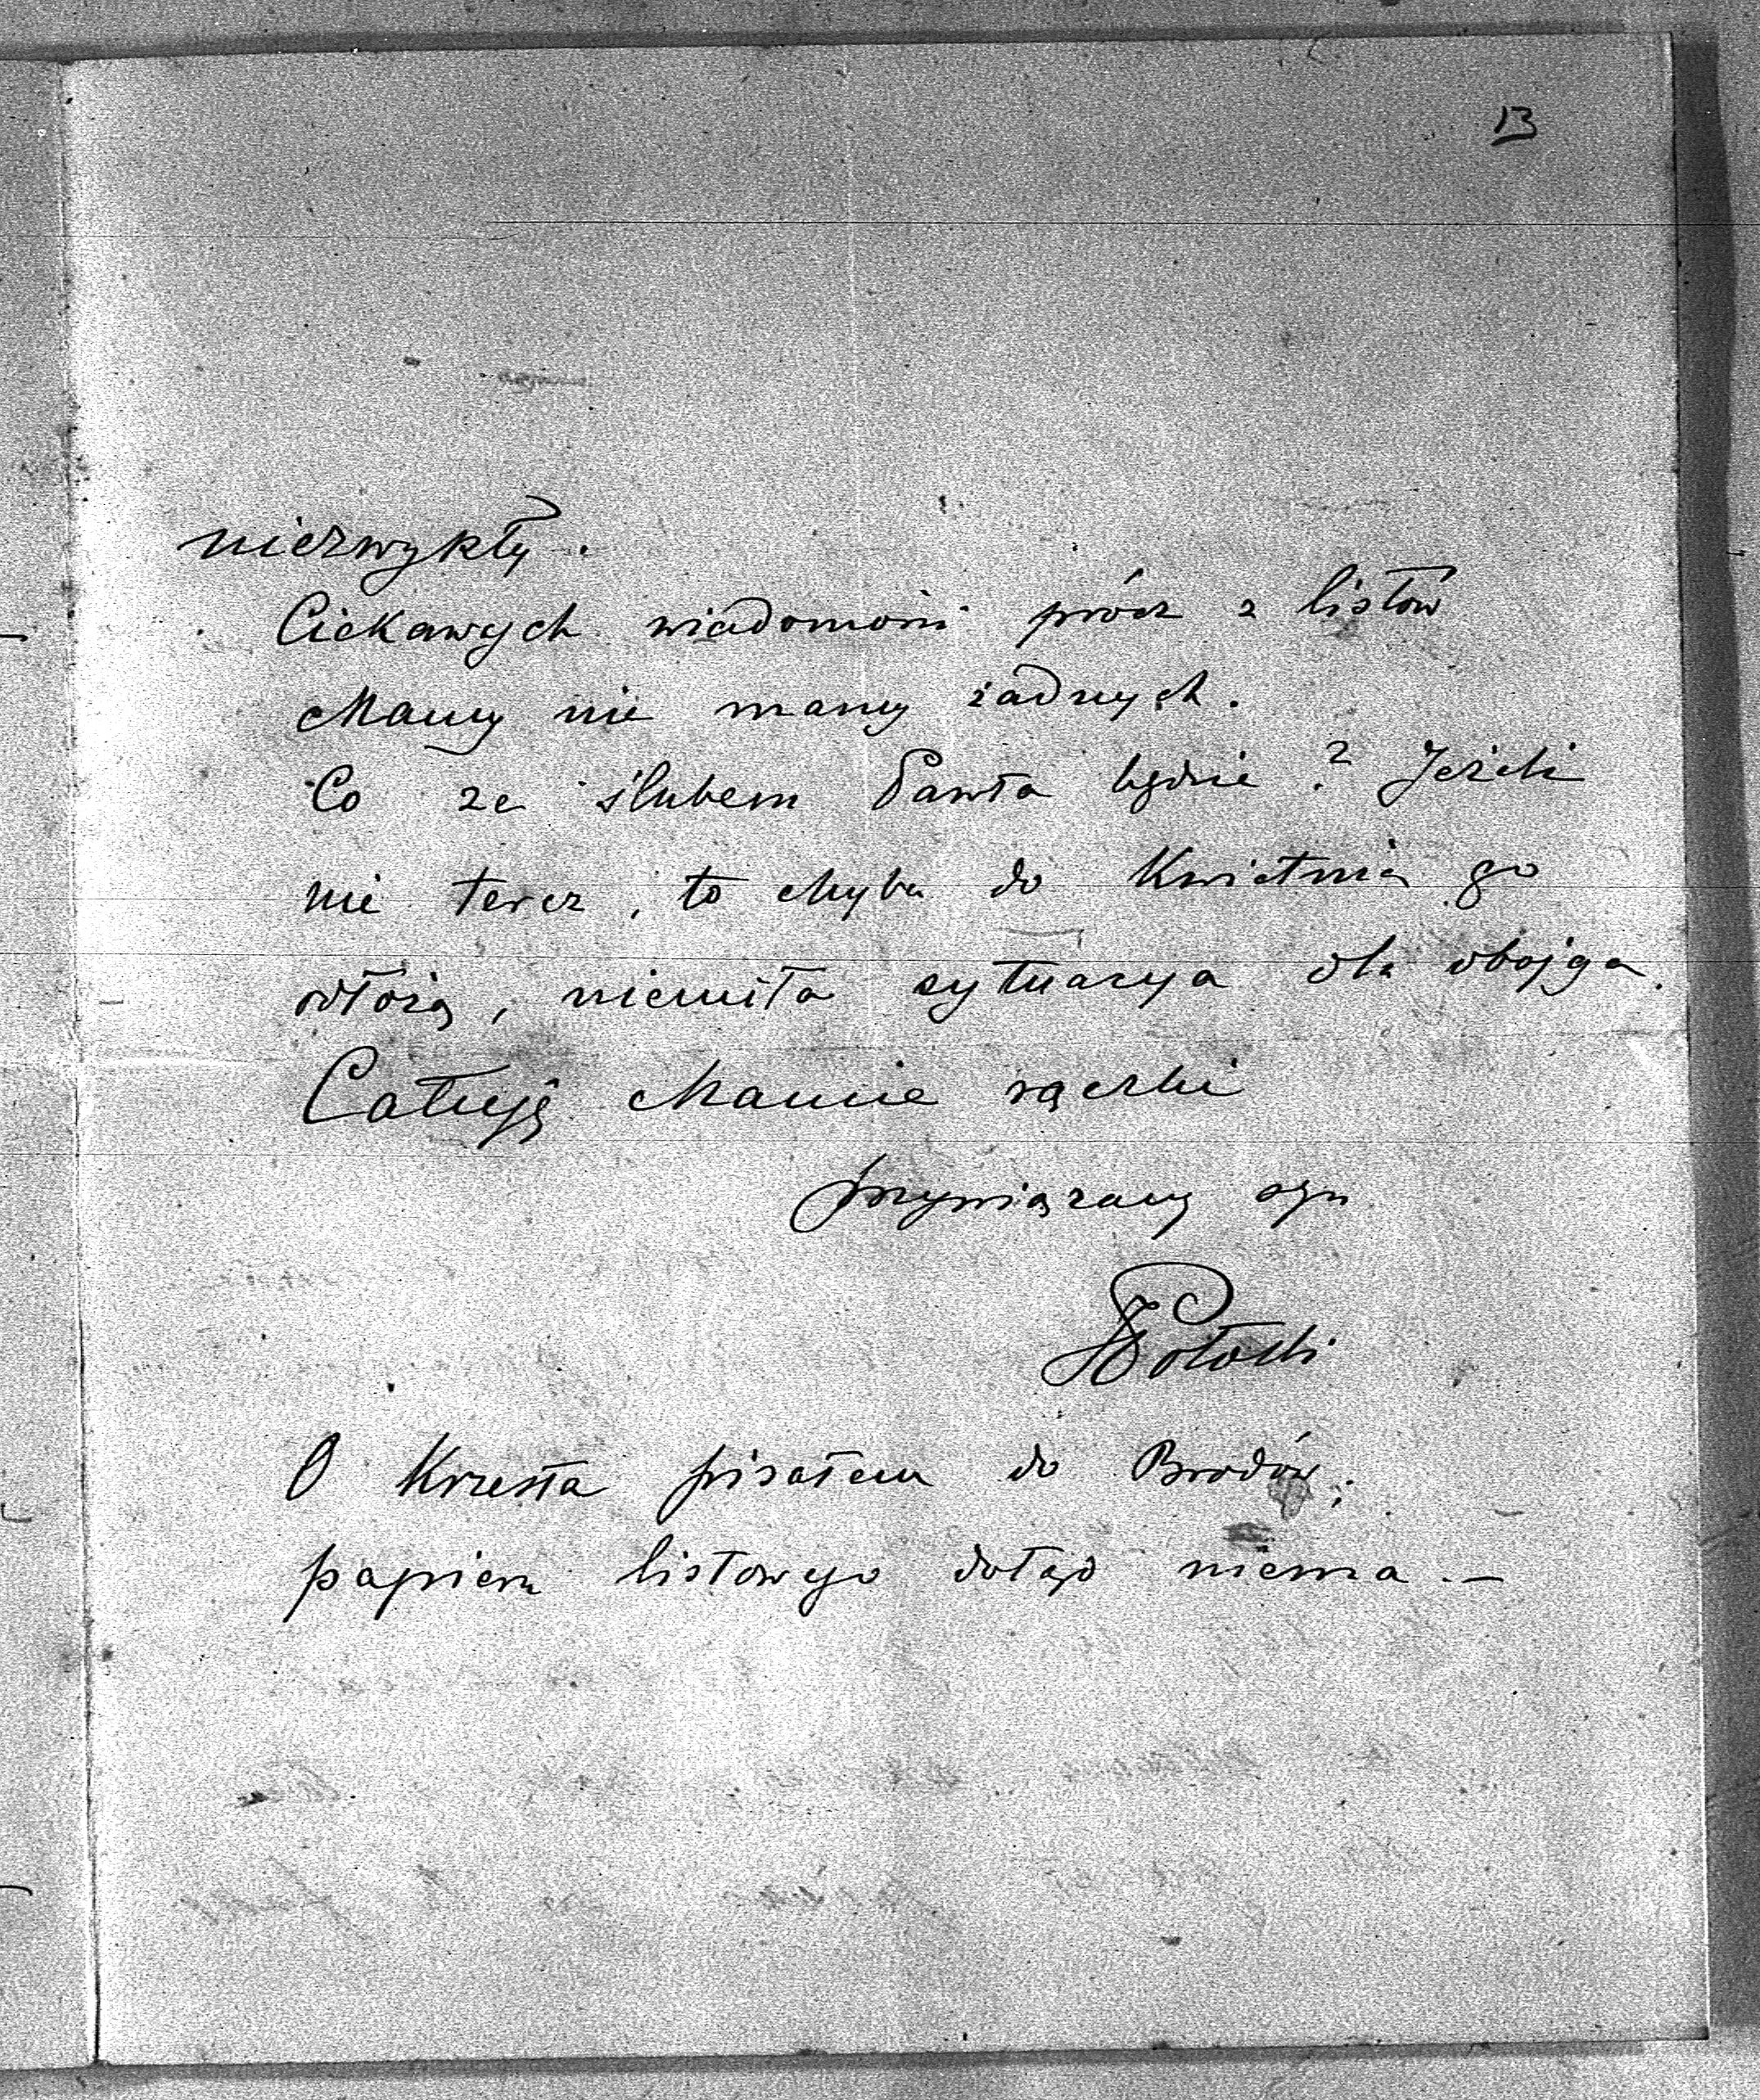 13
niezwykły.
Ciekawych wiadomości prócz z listów
Mamy nie mamy żadnych.
Co ze ślubem Pawła będzie? Jeżeli
nie teraz, to chyba do Kwietnia go
odłożą, niemiła sytuacya dla obojga.
Całuję Mamie rączki
przywiązany syn
Potocki
O Krzesła pisałem do Brodów;
papieru listowego dotąd niema. —